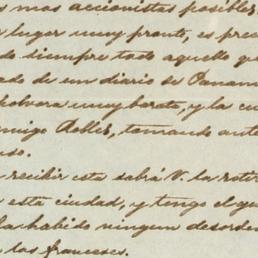 s mas accionistas posibles.
lugar muy pronto, es prec
do siempre todo aquello qu
ado de un diario de Panam
polvora muy barata, y la cu
migo Robles, tomando ante
uso.
recibir esta sabrá V. la
esta ciudad, y tengo el gu
ha habido ningun desorden
los franceses.